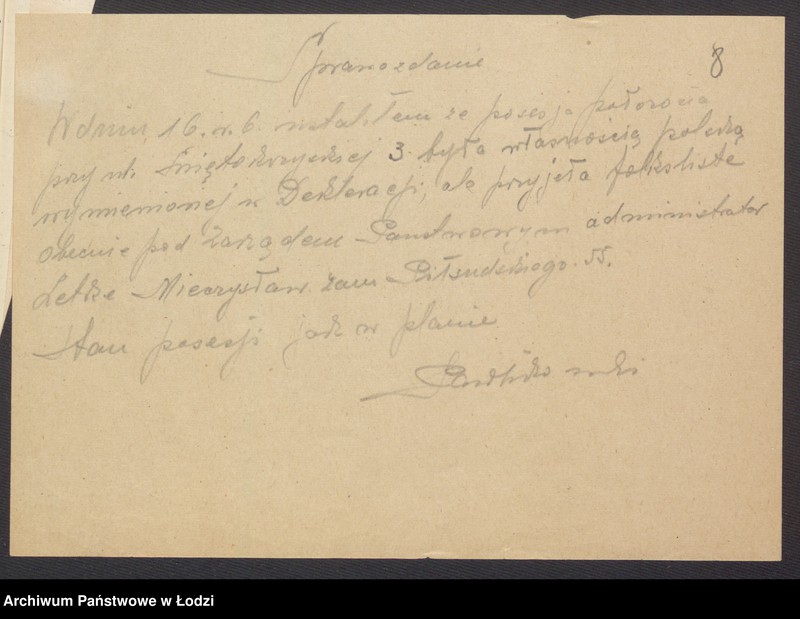 8
Sprawozdanie
W dniu 16. w. 6. ustaliłem że posesja położona
przy ul. Świętokrzyskiej 3. była własnością polską
wymienionej w Deklaracji, ale przyjęła folkslistę
obecnie pod Zarządem Państwowym administrator
Letke Mieczysław zam Piłsudskiego. 55.
Stan posesji jak w planie
Archiwum Państwowe w Łodzi